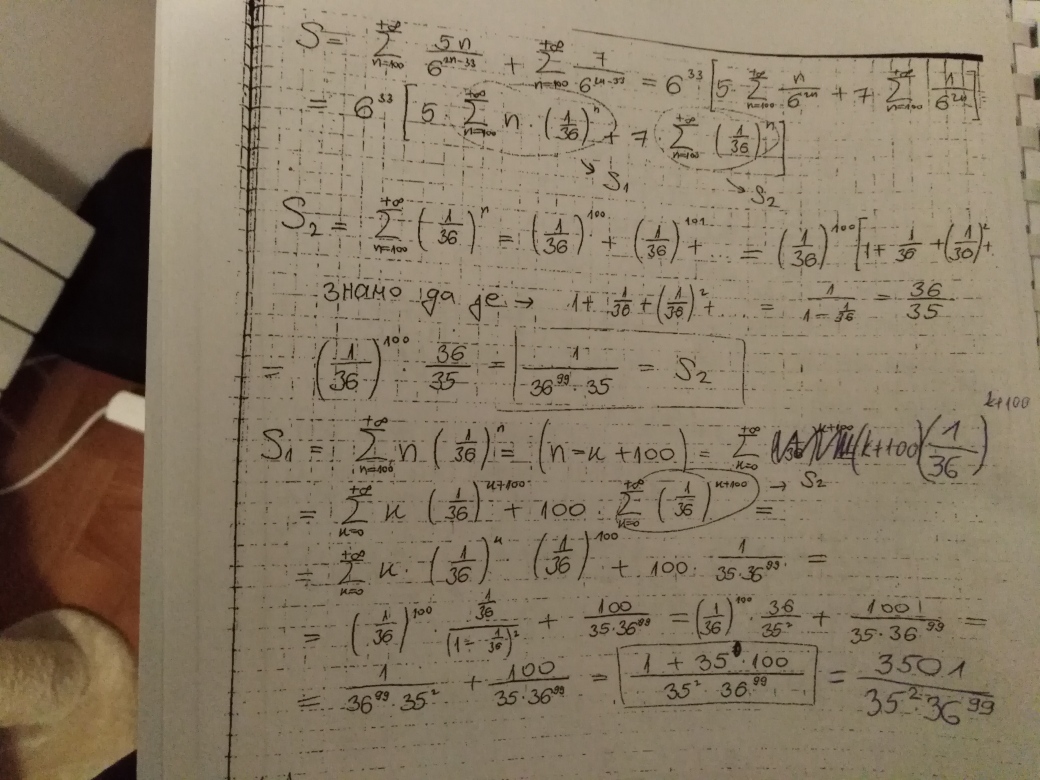 S = \sum_{n=100}^{+\infty} \frac{5n}{6^{2n-33}} + \sum_{n=100}^{+\infty} \frac{7}{6^{2n-33}} = 6^{33} [ 5 · \sum_{n=100}^{+\infty} \frac{n}{6^{2n}} + 7 · \sum_{n=100}^{+\infty} \frac{1}{6^{2n}} ]
= 6^{33} [ 5 · \sum_{n=100}^{+\infty} n · (\frac{1}{36})^n + 7 \sum_{n=100}^{+\infty} (\frac{1}{36})^n ]
→ S_1 → S_2
S_2 = \sum_{n=100}^{+\infty} (\frac{1}{36})^n = (\frac{1}{36})^{100} + (\frac{1}{36})^{101} + ... = (\frac{1}{36})^{100} [ 1 + \frac{1}{36} + (\frac{1}{30})^2 +
Знамо да је → 1 + \frac{1}{36} + (\frac{1}{36})^2 + ... = \frac{1}{1 - \frac{1}{36}} = \frac{36}{35}
= (\frac{1}{36})^{100} · \frac{36}{35} = \frac{1}{36^{99} · 35} = S_2
S_1 = \sum_{n=100}^{+\infty} n (\frac{1}{36})^n = (n = k + 100) = \sum_{k=0}^{+\infty} (k+100) (\frac{1}{36})^{k+100}
= \sum_{k=0}^{+\infty} k (\frac{1}{36})^{k+100} + 100 · \sum_{k=0}^{+\infty} (\frac{1}{36})^{k+100} → S_2 =
= \sum_{k=0}^{+\infty} k · (\frac{1}{36})^k · (\frac{1}{36})^{100} + 100 · \frac{1}{35 · 36^{99}} =
= (\frac{1}{36})^{100} · \frac{\frac{1}{36}}{(1 - \frac{1}{36})^2} + \frac{100}{35 · 36^{99}} = (\frac{1}{36})^{100} · \frac{36}{35^2} + \frac{100}{35 · 36^{99}} =
= \frac{1}{36^{99} · 35^2} + \frac{100}{35 · 36^{99}} = \frac{1 + 35 · 100}{35^2 · 36^{99}} = \frac{3501}{35^2 · 36^{99}}